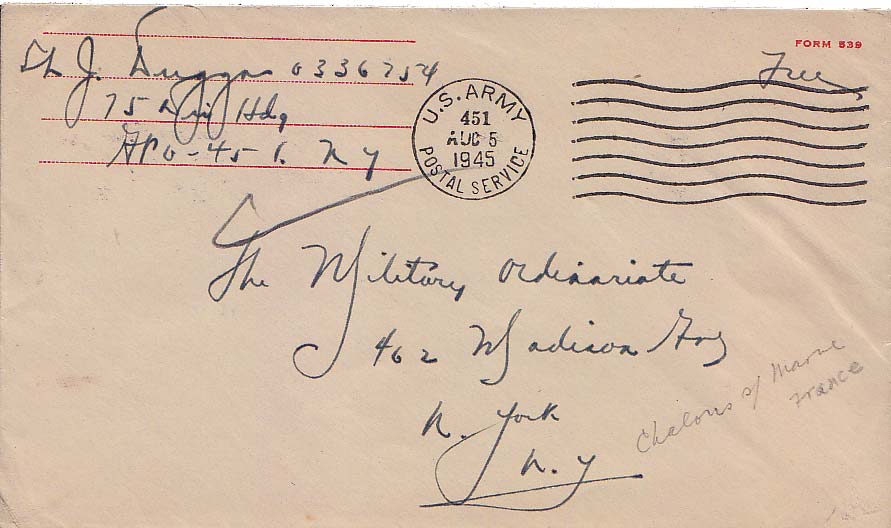 FORM 539
Free
Ch J. Duggan 0336754
75 Div Hdq
APO-451. NY
U.S. ARMY
451
AUG 5
1945
POSTAL SERVICE
The Military Ordinariate
462 Madison Ave
N. York
N. Y
Chalons s/ Marne
France